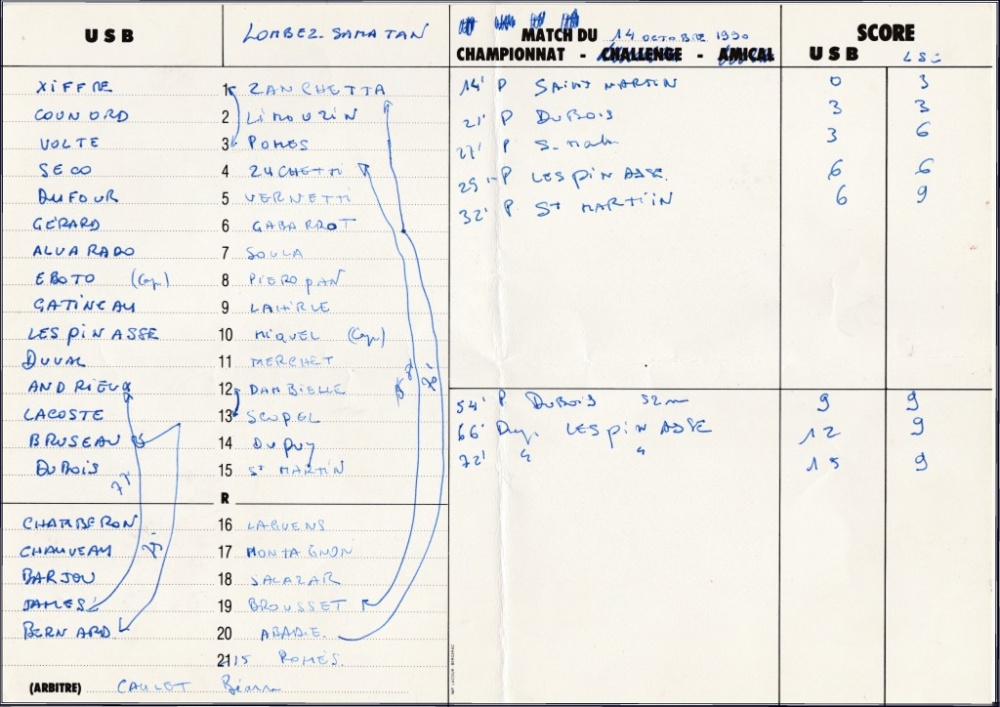 USB LOMBEZ-SAMATAN MATCH DU 14 OCTOBRE 1990 SCORE
CHAMPIONNAT - CHALLENGE - AMICAL USB LSC
XIFFRE 1 ZANCHETTA
COUNORD 2 LIMOUZIN
VOLTE 3 POMES
SECO 4 ZUCHETTI
DUFOUR 5 VERNETTI
GÉRARD 6 GABARROT
ALVARADO 7 SOULA
EBOTO (Cap) 8 PIEROPAN
GATINEAU 9 LAHIRLE
LESPINASSE 10 MIQUEL (Cap)
DUVAL 11 MERCHET
ANDRIEUX 12 DAMBIELLE
LACOSTE 13 SCOPEL
BRUSEAU 14 DUPUY
DUBOIS 15 ST MARTIN
R
CHAMBERON 16 LAGUENS
CHAUVEAU 17 MONTAGNON
BARJOU 18 SALAZAR
JAMES 19 BROUSSET
BERNARD 20 ABADIE
21 15 POMÉS
(ARBITRE) CAULET Béarn
14' P SAINT MARTIN 0 3
21' P DUBOIS 3 3
27' P S. Mart 3 6
29' P LESPINASSE 6 6
32' P ST MARTIIN 6 9
54' P DUBOIS 52m 9 9
66' Drop. LESPINASSE 12 9
72' " " 15 9
77'